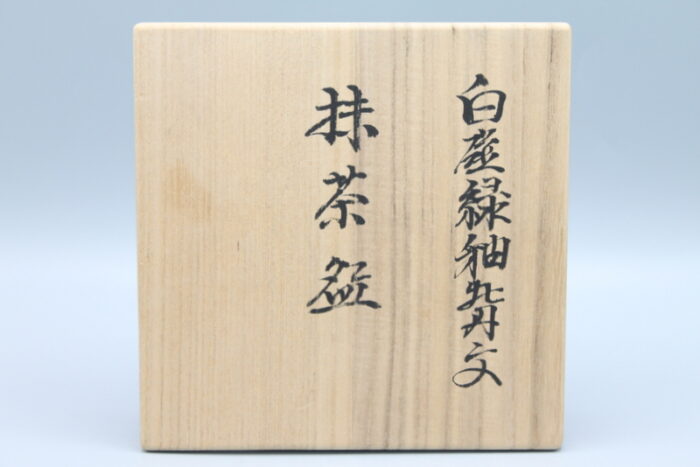 白産緑釉牡丹文
抹茶盌